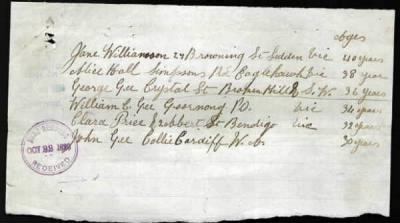 Ages
Jane Williamson 24 Browning St Seddon Vic 40 years
Alice Hall Simpsons Rd Eaglehawk Vic 38 year
George Gee Crystal St Broken Hill N. S. W. 36 years
William C. Gee Goornong P.O. Vic 34 years
Clara Price Bendigo Vic 32 years
John Gee Collie Cardiff W. A. 30 years
OCT 28
RECEIVED